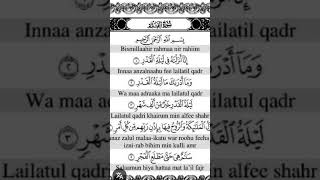 سُورَةُ الْقَدْرِ
بِسْمِ اللَّهِ الرَّحْمَٰنِ الرَّحِيمِ
Bismillaahir rahmaa nir rahiim
إِنَّا أَنْزَلْنَاهُ فِي لَيْلَةِ الْقَدْرِ ١
Innaa anzalnaahu fee lailatil qadr
وَمَا أَدْرَاكَ مَا لَيْلَةُ الْقَدْرِ ٢
Wa maa adraaka ma lailatul qadr
لَيْلَةُ الْقَدْرِ خَيْرٌ مِنْ أَلْفِ شَهْرٍ ٣
Lailatul qadri khairum min alfee shahr
تَنَزَّلُ الْمَلَائِكَةُ وَالرُّوحُ فِيهَا بِإِذْنِ رَبِّهِمْ مِنْ كُلِّ أَمْرٍ
anaz zalul malaa-ikatu war roohu feeha
izni-rab bihim min kulli amr
سَلَامٌ هِيَ حَتَّىٰ مَطْلَعِ الْفَجْرِ
Salaamun hiya hattaa mat la'il fajr